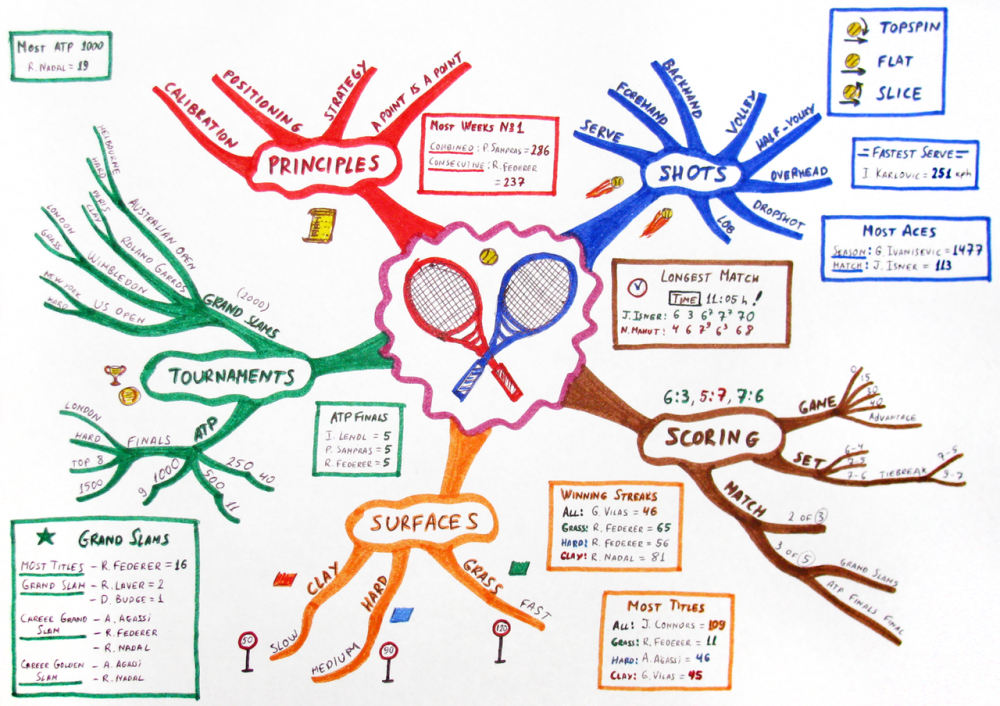 MOST ATP 1000
R. NADAL = 19
CALIBRATION
POSITIONING
STRATEGY
A POINT IS A POINT
PRINCIPLES
MOST WEEKS № 1
COMBINED: P. SAMPRAS = 286
CONSECUTIVE: R. FEDERER
= 237
SERVE
FOREHAND
BACKHAND
VOLLEY
HALF-VOLLEY
OVERHEAD
DROPSHOT
LOB
SHOTS
TOPSPIN
FLAT
SLICE
=FASTEST SERVE=
I. KARLOVIC = 251 kph
MOST ACES
SEASON: G. IVANISEVIC = 1477
MATCH: J. ISNER = 113
LONGEST MATCH
TIME 11:05 h!
J. ISNER: 6 3 6⁷ 7⁷ 70
N. MAHUT: 4 6 7⁹ 6³ 68
MELBOURNE
HARD
AUSTRALIAN OPEN
PARIS
CLAY
ROLAND GARROS
LONDON
GRASS
WIMBLEDON
NEW YORK
HARD
US OPEN
(2000)
GRAND SLAMS
TOURNAMENTS
ATP
FINALS
LONDON
HARD
TOP 8
1500
1000
9
500
11
250
40
ATP FINALS
I. LENDL = 5
P. SAMPRAS = 5
R. FEDERER = 5
6:3, 5:7, 7:6
SCORING
GAME
0
15
30
40
ADVANTAGE
SET
6-4
7-5
7-6
TIEBREAK
7-5
9-7
MATCH
2 OF 3
3 OF 5
GRAND SLAMS
ATP FINALS FINAL
SURFACES
CLAY
SLOW
50
HARD
MEDIUM
90
GRASS
FAST
120
WINNING STREAKS
ALL: G. VILAS = 46
GRASS: R. FEDERER = 65
HARD: R. FEDERER = 56
CLAY: R. NADAL = 81
MOST TITLES
ALL: J. CONNORS = 109
GRASS: R. FEDERER = 11
HARD: A. AGASSI = 46
CLAY: G. VILAS = 45
GRAND SLAMS
MOST TITLES – R. FEDERER = 16
GRAND SLAM – R. LAVER = 2
– D. BUDGE = 1
CAREER GRAND SLAM – A. AGASSI
– R. FEDERER
– R. NADAL
CAREER GOLDEN SLAM – A. AGASSI
– R. NADAL